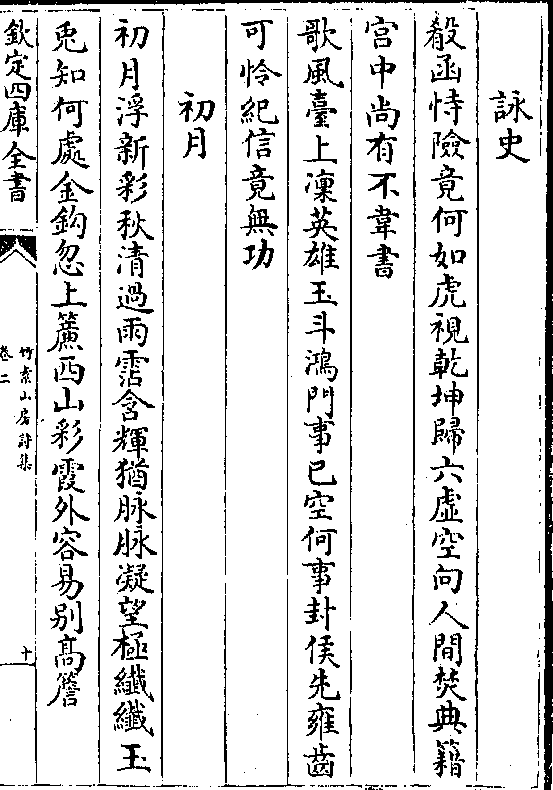 詠史
殽函恃險竟何如虎視乾坤歸六虛空向人間焚典籍
宫中尚有不韋書
歌風臺上凜英雄玉斗鴻門事已空何事封侯先雍齒
可怜紀信竟無功
初月
初月浮新彩秋清過雨霑含輝猶脉脉凝望極纎纎玉
兎知何處金鈎忽上簾西山彩霞外容易别髙簷
欽定四庫全書
竹素山房詩集
卷二
十